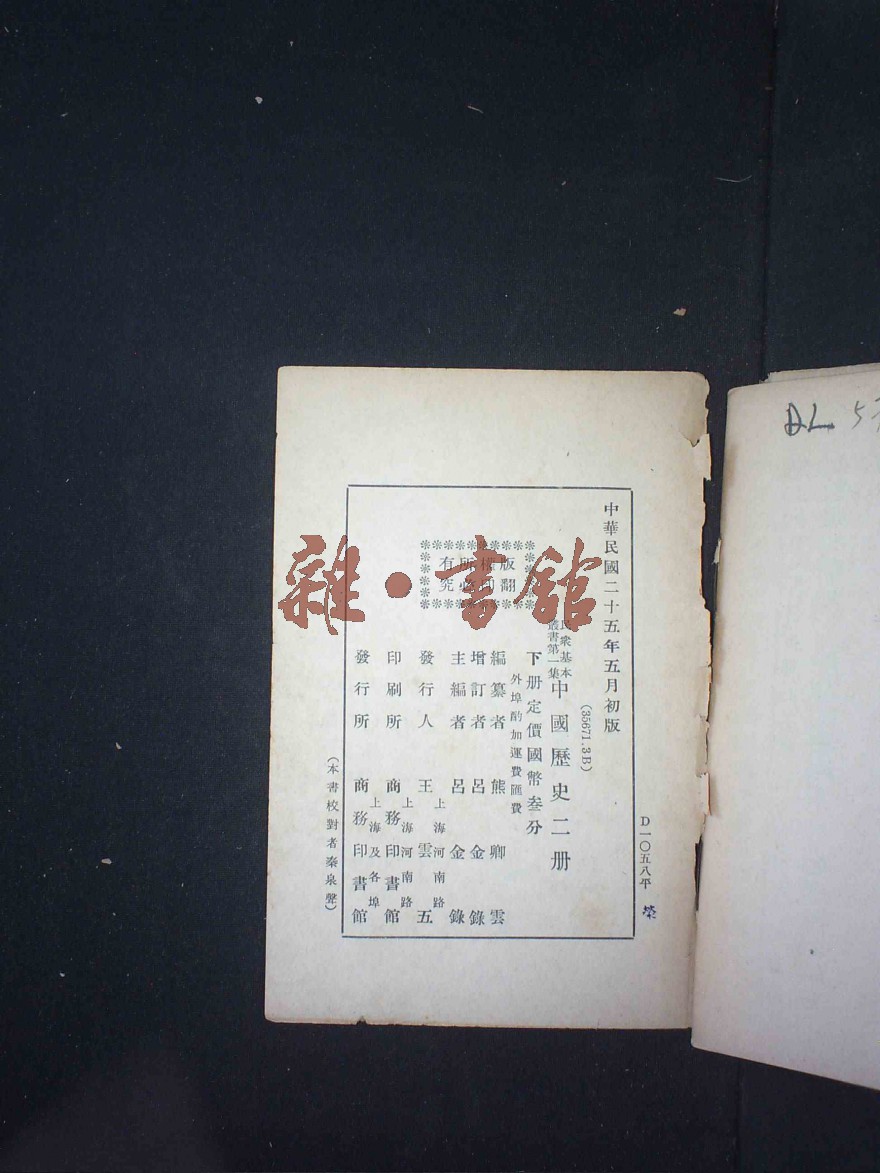 中華民國二十五年五月初版
(35671.3B)
民衆基本
叢書第一集
中國歷史二册
下册定價國幣叁分
外埠酌加運費匯費
編纂者 熊卿雲
增訂者 呂金錄
主編者 呂金錄
發行人 王雲五
上海河南路
印刷所 商務印書館
上海河南路
發行所 商務印書館
上海及各埠
(本書校對者秦泉聲)
版權所有
翻印必究
D一〇五八平
榮
雜·書館
DL 5